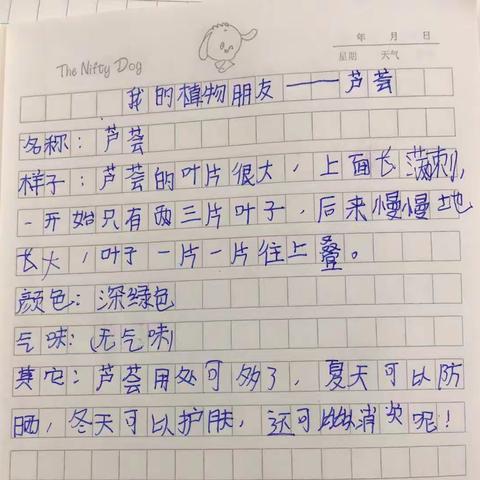 The Nifty Dog
年 月 日
星期 天气
我的植物朋友——芦荟
名称：芦荟
样子：芦荟的叶片很大，上面长满刺，
一开始只有两三片叶子，后来慢慢地
长大，叶子一片一片往上叠。
颜色：深绿色
气味：(无气味)
其它：芦荟用处可多了，夏天可以防
晒，冬天可以护肤，还可以消炎呢！